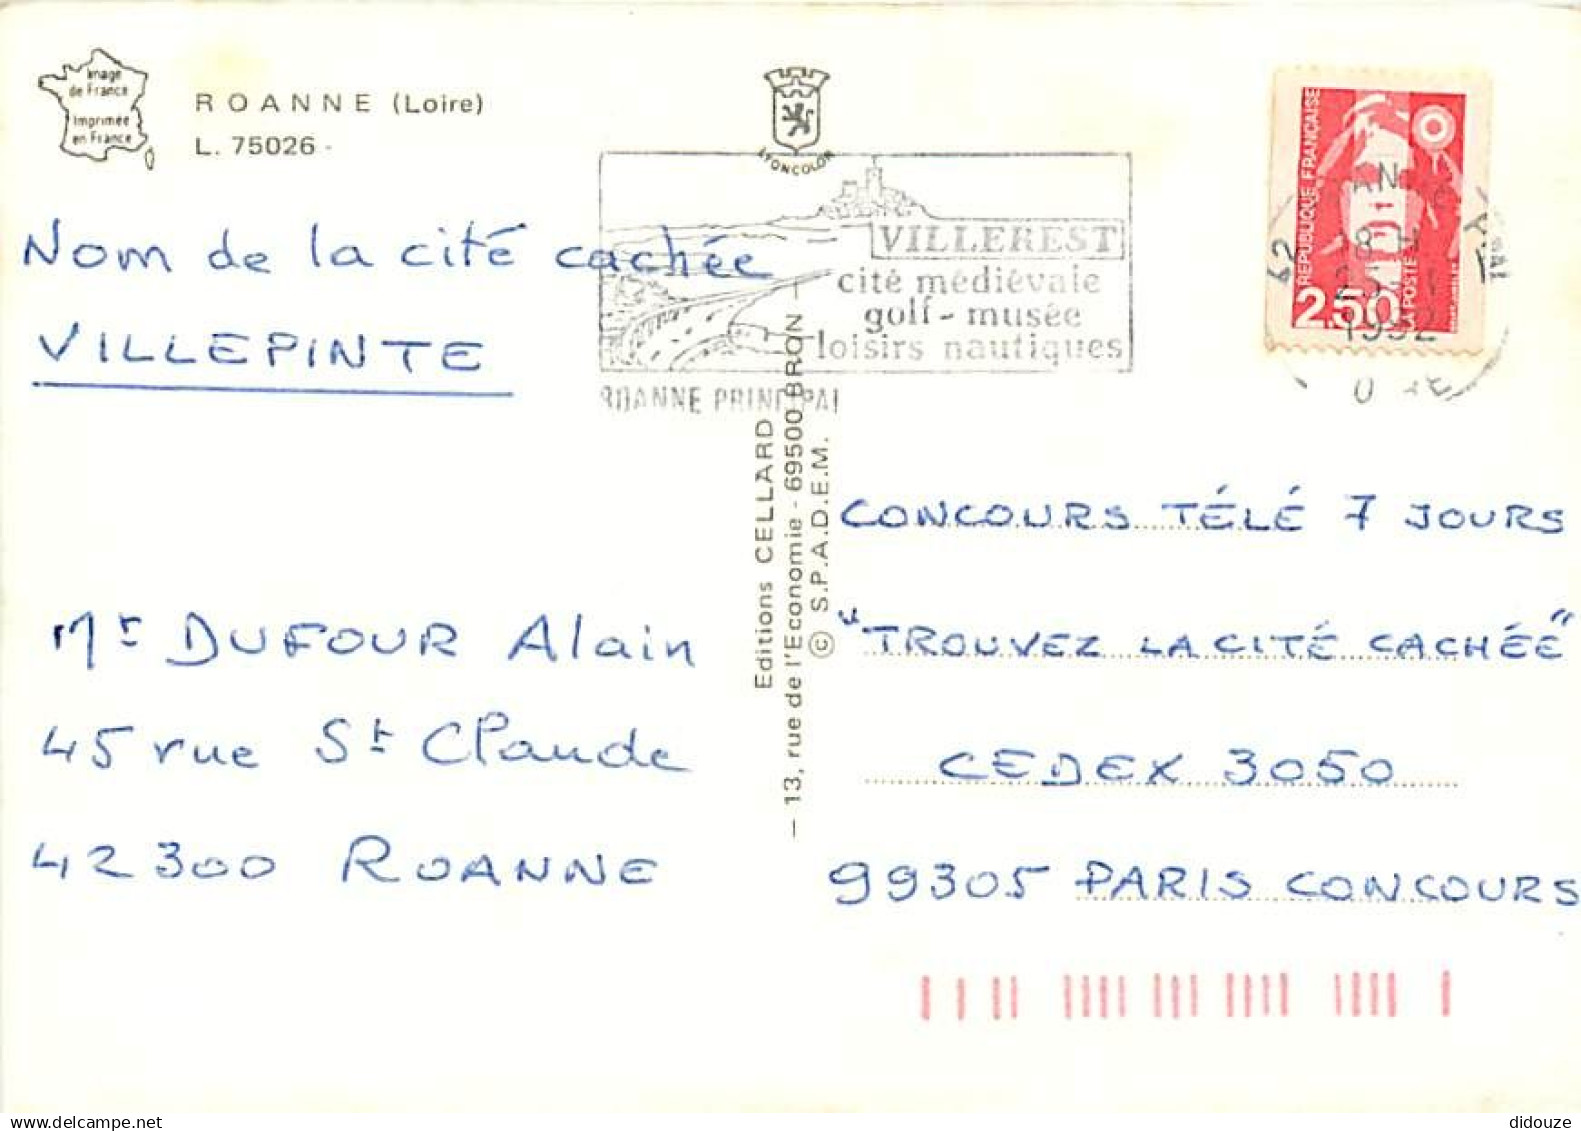 Image
de France
Imprimée
en France
ROANNE (Loire)
L. 75026
LYONCOLOR
Nom de la cité cachée
VILLEPINTE
VILLEREST
cité médiévale
golf - musée
loisirs nautiques
ROANNE PRINCIPAL
RÉPUBLIQUE FRANÇAISE
2,50
LA POSTE
42
18 H
1992
Editions CELLARD
— 13, rue de l'Economie - 69500 BRON —
© S.P.A.D.E.M.
CONCOURS TÉLÉ 7 JOURS
"TROUVEZ LA CITÉ CACHÉE"
CEDEX 3050
99305 PARIS CONCOURS
Mr DUFOUR Alain
45 rue St Claude
42300 ROANNE
didouze